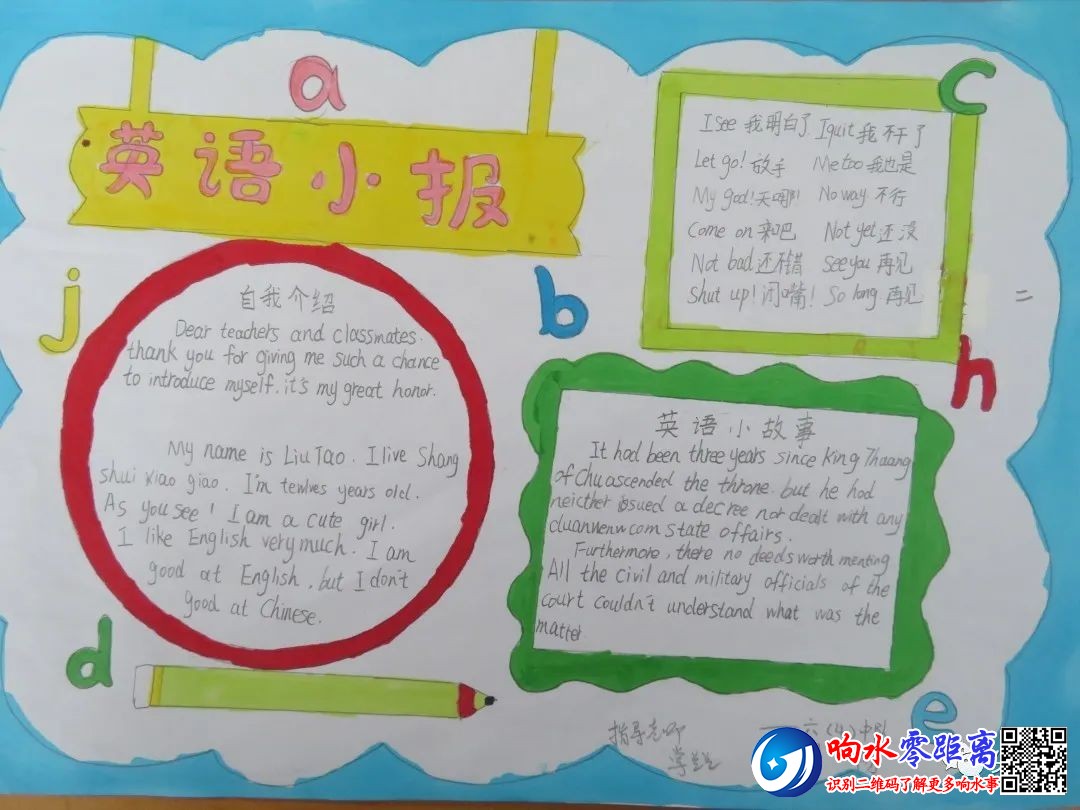 a
英语小报
c
I see 我明白了. I quit 我不干了
Let go! 放手 Me too 我也是
My god! 天哪! No way 不行
Come on 来吧 Not yet 还没
Not bad 还不错 See you 再见
Shut up! 闭嘴! So long 再见
j
b
h
自我介绍
Dear teachers and classmates.
thank you for giving me such a chance
to introduce myself. it's my great honor.
My name is Liu Tao. I live Shang
shui xiao giao. I'm tewlves years old.
As you see! I am a cute girl.
I like English very much. I am
good at English, but I don't
good at Chinese.
英语小故事
It had been three years since king Thuang
of Chu ascended the throne. but he had
neicther issued a decree nor dealt with any
state offairs.
Furthermore, there no deeds worth menting
All the civil and military officials of the
court couldn't understand what was the
matter.
d
e
指导老师
学生
六(4)
响水零距离
识别二维码了解更多响水事